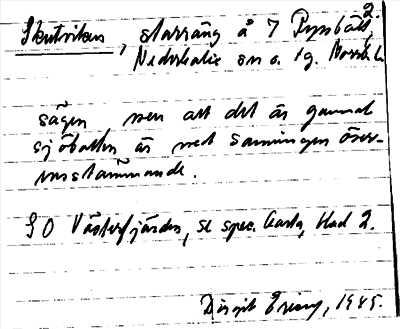 2.
Skutviken, starräng å 7 
Nederkalix sn o. lg. Norrb. l.
sägen men att det är gammal
sjöbotten är med sanningen över-
ensstämmande.
S O Västerfjärden, se spec. karta, blad 2.
Birgit Ering, 1945.